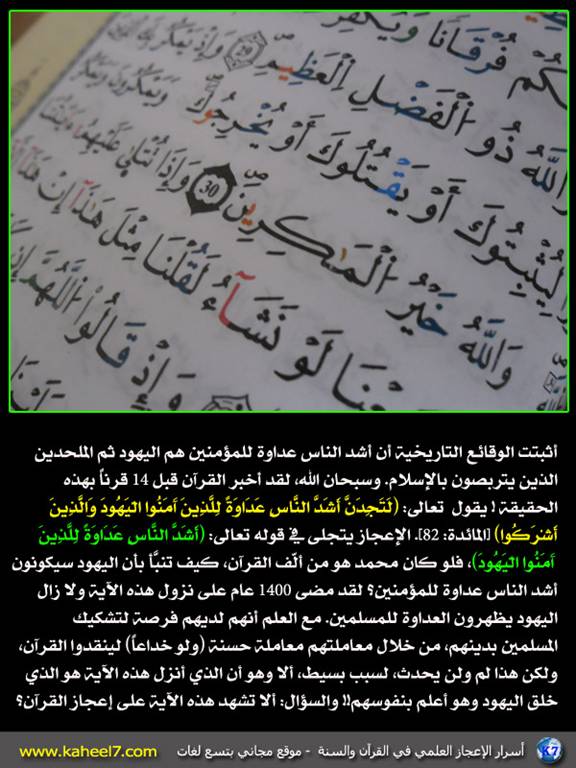 كُمْ فُرْقَانًا وَيُكَفِّرْ
وَاللَّهُ ذُو الْفَضْلِ الْعَظِيمِ 29 وَإِذْ يَمْكُرُ بِكَ الَّذِينَ
لِيُثْبِتُوكَ أَوْ يَقْتُلُوكَ أَوْ يُخْرِجُوكَ وَيَمْكُرُونَ وَيَمْكُرُ
وَاللَّهُ خَيْرُ الْمَاكِرِينَ 30 وَإِذَا تُتْلَى عَلَيْهِمْ آيَاتُنَا
سَمِعْنَا لَوْ نَشَاءُ لَقُلْنَا مِثْلَ هَذَا إِنْ هَذَا
وَإِذْ قَالُوا اللَّهُمَّ إِن
أثبتت الوقائع التاريخية أن أشد الناس عداوة للمؤمنين هم اليهود ثم الملحدين
الذين يتربصون بالإسلام. وسبحان الله، لقد أخبر القرآن قبل 14 قرناً بهذه
الحقيقة! يقول تعالى: (لَتَجِدَنَّ أَشَدَّ النَّاسِ عَدَاوَةً لِلَّذِينَ آَمَنُوا الْيَهُودَ وَالَّذِينَ
أَشْرَكُوا) [المائدة: 82]. الإعجاز يتجلى في قوله تعالى: (أَشَدَّ النَّاسِ عَدَاوَةً لِلَّذِينَ
آَمَنُوا الْيَهُودَ)، فلو كان محمد هو من ألّف القرآن، كيف تنبَّأ بأن اليهود سيكونون
أشد الناس عداوة للمؤمنين؟ لقد مضى 1400 عام على نزول هذه الآية ولا زال
اليهود يظهرون العداوة للمسلمين. مع العلم أنهم لديهم فرصة لتشكيك
المسلمين بدينهم، من خلال معاملتهم معاملة حسنة (ولو خداعاً) لينقدوا القرآن،
ولكن هذا لم ولن يحدث، لسبب بسيط، ألا وهو أن الذي أنزل هذه الآية هو الذي
خلق اليهود وهو أعلم بنفوسهم!! والسؤال: ألا تشهد هذه الآية على إعجاز القرآن؟
أسرار الإعجاز العلمي في القرآن والسنة - موقع مجاني بتسع لغات www.kaheel7.com
K7